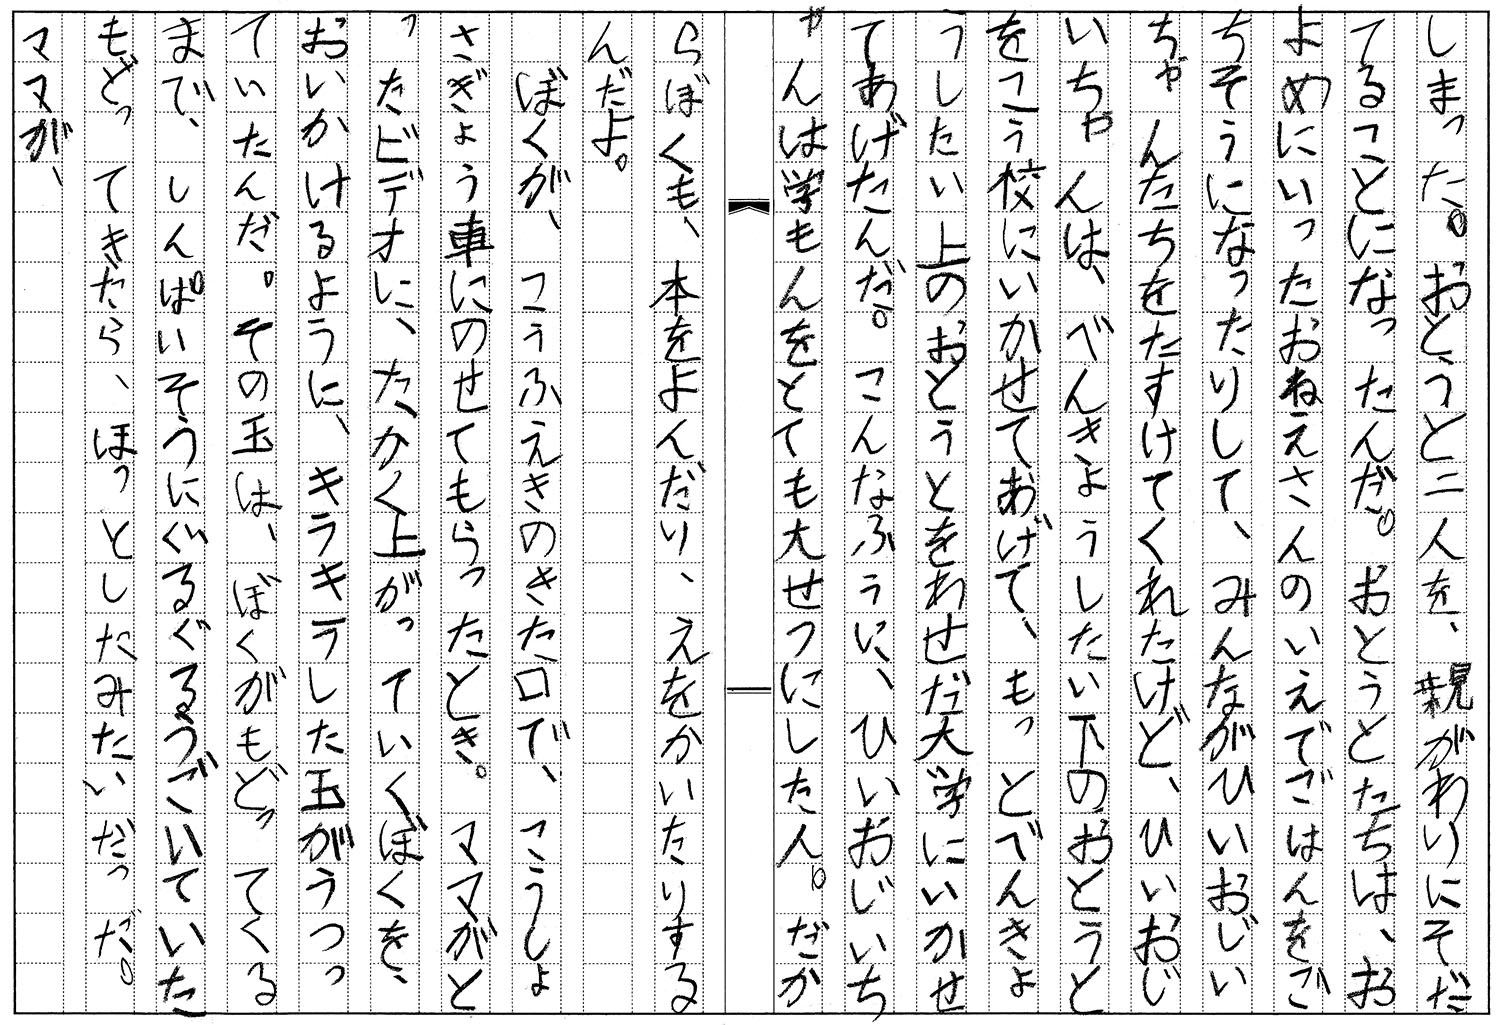 しまった。おとうと二人を、親がわりにそだ
てることになったんだ。おとうとたちは、お
よめにいったおねえさんのいえでごはんをご
ちそうになったりして、みんながひいおじい
ちゃんたちをたすけてくれたけど、ひいおじ
いちゃんは、べんきょうしたい下のおとうと
をこう校にいかせてあげて、もっとべんきょ
うしたい上のおとうとをわせだ大学にいかせ
てあげたんだ。こんなふうに、ひいおじいち
ゃんは学もんをとても大せつにした人。だか
らぼくも、本をよんだり、えをかいたりする
んだよ。
ぼくが、こうふえきのきた口で、こうしょ
さぎょう車にのせてもらったとき。ママがと
ったビデオに、たかく上がっていくぼくを、
おいかけるように、キラキラした玉がうつっ
ていたんだ。その玉は、ぼくがもどってくる
まで、しんぱいそうにぐるぐるうごいていた
もどってきたら、ほっとしたみたいだった。
ママが、